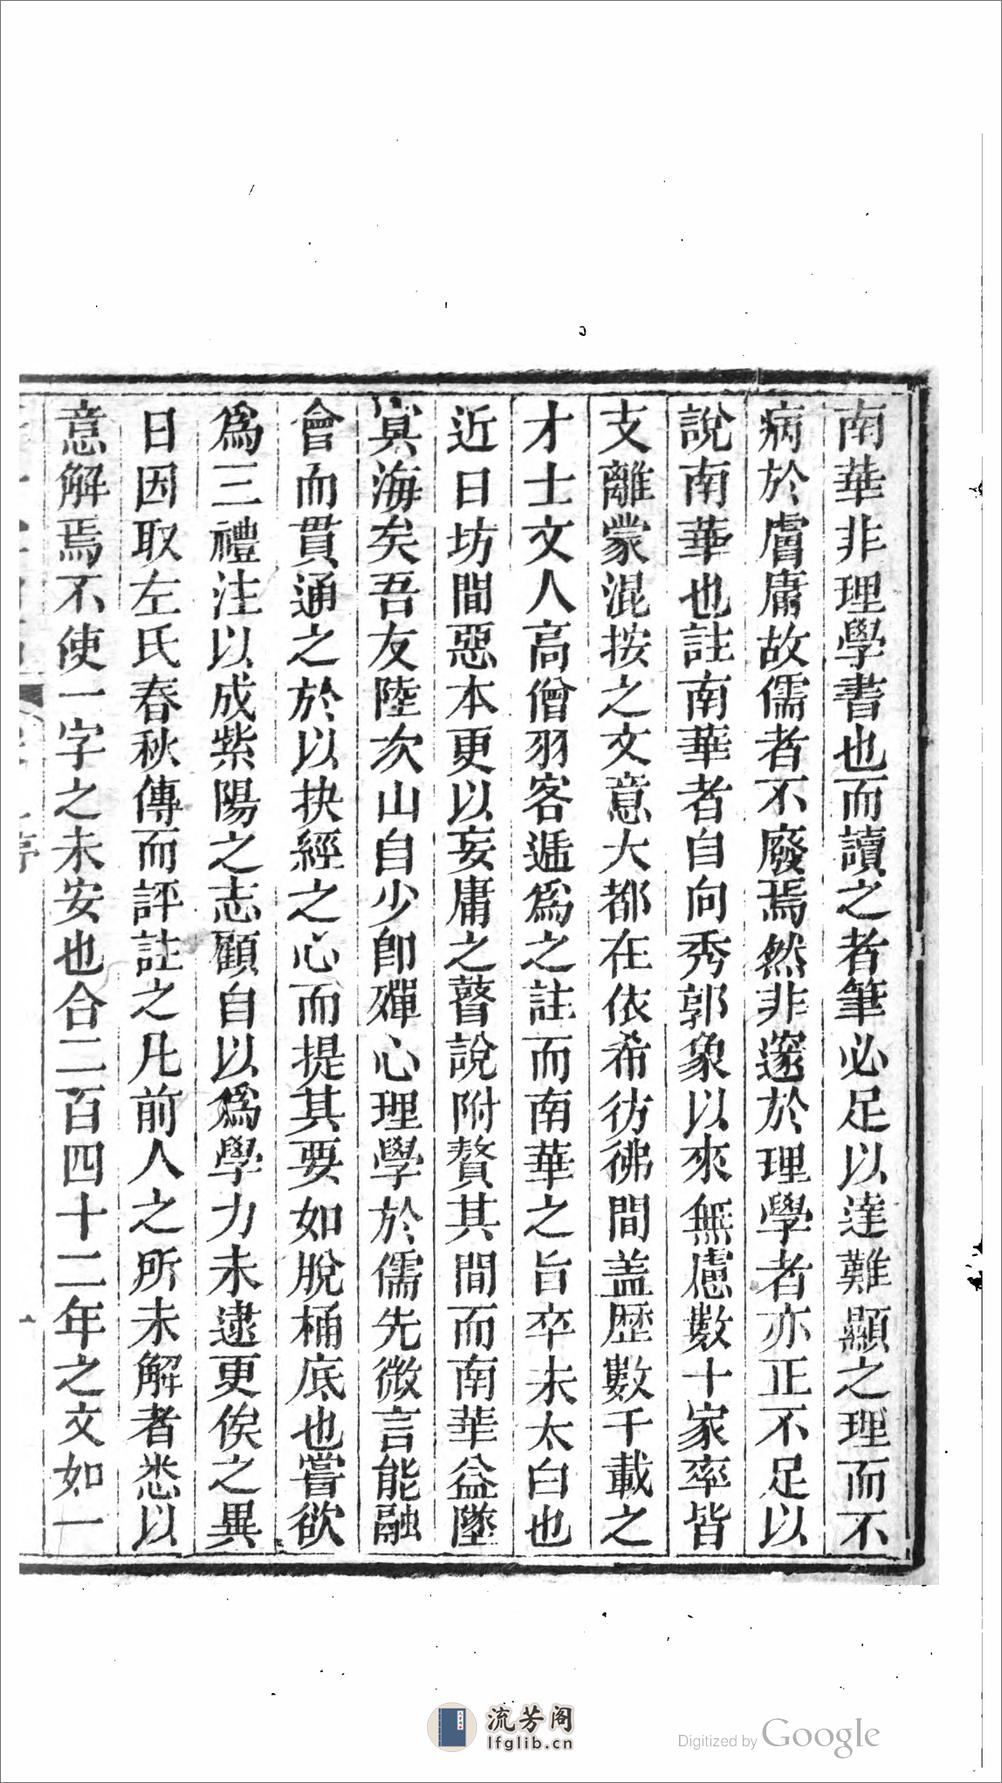 南華非理學書也而讀之者筆必足以達難顯之理而不
病於膚庸故儒者不廢焉然非邃於理學者亦正不足以
說南華也註南華者自向秀郭象以來無慮數十家率皆
支離蒙混按之文意大都在依希彷彿間盖歷數千載之
才士文人高僧羽客遞爲之註而南華之旨卒未太白也
近日坊間惡本更以妄庸之瞽說附贅其間而南華益墜
冥海矣吾友陸次山自少卽殫心理學於儒先微言能融
會而貫通之於以抉經之心而提其要如脫桶底也嘗欲
爲三禮注以成紫陽之志顧自以爲學力未逮更俟之異
日因取左氏春秋傳而評註之凡前人之所未解者悉以
意解焉不使一字之未安也合二百四十二年之文如一
序
流芳阁
lfglib.cn
Digitized by Google